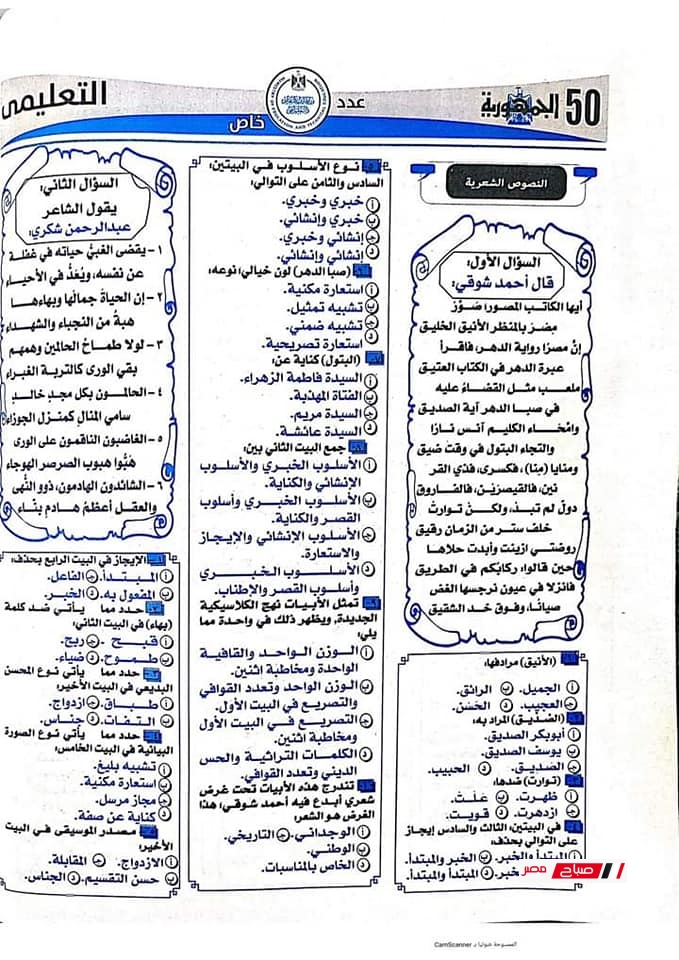 50 الجمهورية
عدد
خاص
التعليمى
النصوص الشعرية
السؤال الأول:
قال أحمد شوقي:
أيها الكاتب المصور؛ صَوّرْ
مصرَ بالمنظر الأنيق الخليق
إنَّ مصرًا رواية الدهر، فاقرأ
عبرة الدهر في الكتاب العتيق
ملعب مثل القضاءُ عليه
في صبا الدهر آية الصديق
وامّحاء الكليم آنس نارًا
والتجاء البتول في وقت ضيق
ومنايا (مِنا)، فكسرى، فذي القر
نين، فالقيصرَيْن، فالفاروق
دولٌ لم تبدْ، ولكنْ توارتْ
خلف ستر من الزمان رقيق
روضتي ازينت وأبدت حلاها
حين قالوا: ركابُكم في الطريق
فانزلا في عيون نرجسها الغض
صيانًا، وفوق خد الشقيق
١- (الأنيق) مرادفها:
أ الجميل. ب الرائق.
ج العجيب. د الحَسَن.
(الصِّدِّيق) المراد به:
أ أبوبكر الصديق.
ب يوسف الصديق.
ج الصَّدِيق. د الحبيب.
(توارت) ضدها:
أ ظهرت. ب عَلَتْ.
ج ازدهرت. د قويت.
في البيتين: الثالث والسادس إيجاز
على التوالي بحذف:
أ المبتدأ والخبر. ب الخبر والمبتدأ.
خبر. د المبتدأ والمبتدأ.
صباح مصر
٥- نوع الأسلوب في البيتين:
السادس والثامن على التوالي:
أ خبري وخبري.
ب خبري وإنشائي.
ج إنشائي وخبري.
د إنشائي وإنشائي.
(صبا الدهر) لون خيالي؛ نوعه:
أ استعارة مكنية.
ب تشبيه تمثيل.
ج تشبيه ضمني.
د استعارة تصريحية.
٧- (البتول) كناية عن:
أ السيدة فاطمة الزهراء.
ب الفتاة المهذبة.
ج السيدة مريم.
د السيدة عائشة.
جمع البيت الثاني بين:
أ الأسلوب الخبري والأسلوب
الإنشائي والكناية.
ب الأسلوب الخبري وأسلوب
القصر والكناية.
ج الأسلوب الإنشائي والإيجاز
والاستعارة.
د الأسلوب الخبري
وأسلوب القصر والإطناب.
٩- تمثل الأبيات نهج الكلاسيكية
الجديدة، ويظهر ذلك في واحدة مما
يلي:
أ الوزن الواحد والقافية
الواحدة ومخاطبة اثنين.
ب الوزن الواحد وتعدد القوافي
والتصريع في البيت الأول.
ج التصريع في البيت الأول
ومخاطبة اثنين.
د الكلمات التراثية والحس
الديني وتعدد القوافي.
تندرج هذه الأبيات تحت غرض
شعري أبدع فيه أحمد شوقي؛ هذا
الغرض هو الشعر:
أ الوجداني. ج التاريخي.
ب الوطني.
د الخاص بالمناسبات.
السؤال الثاني:
يقول الشاعر
عبدالرحمن شكري:
١- يقضى الغبيُّ حياته في غفلة
عن نفسه، ويُعَدُّ في الأحياء
٢- إن الحياةَ جمالُها وبهاءها
هبةٌ من النجباء والشهداء
٣- لولا طماحُ الحالمين وهمهم
بقي الورى كالتربة الغبراء
٤- الحالمون بكل مجدٍ خالدٍ
سامي المنالِ كمنزل الجوزاء
٥- الغاضبون الناقمون على الورى
هَبُّوا هبوب الصرصر الهوجاء
٦- الشائدون الهادمون، ذوو النُّهى
والعقل أعظمُ هادم بنَّاء
١- الإيجاز في البيت الرابع بحذف:
أ المبتدأ. ج الفاعل.
ب المفعول به. د الخبر.
٢- حدد مما يأتي ضد كلمة
(بهاء) في البيت الثاني:
أ قبح. ج ريح.
ب طموح. د ضياء.
٣- حدد مما يأتي نوع المحسن
البديعي في البيت الأخير:
أ طباق. ج ازدواج.
ب التفات. د جناس.
حدد مما يأتي نوع الصورة
البيانية في البيت الخامس:
أ تشبيه بليغ.
ب استعارة مكنية.
ج مجاز مرسل.
د كناية عن صفة.
مصدر الموسيقى في البيت
الأخير:
أ الازدواج. ج المقابلة.
ب حسن التقسيم. د الجناس.
الممسوحة ضوئيا بـ CamScanner